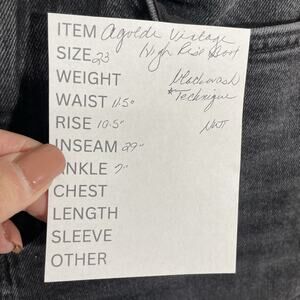 ITEM Agolde Vintage
High Rise Boot
SIZE 23
WEIGHT blackwash
WAIST 11.5" *Technique
RISE 10.5" NWT
INSEAM 29"
ANKLE 7"
CHEST
LENGTH
SLEEVE
OTHER